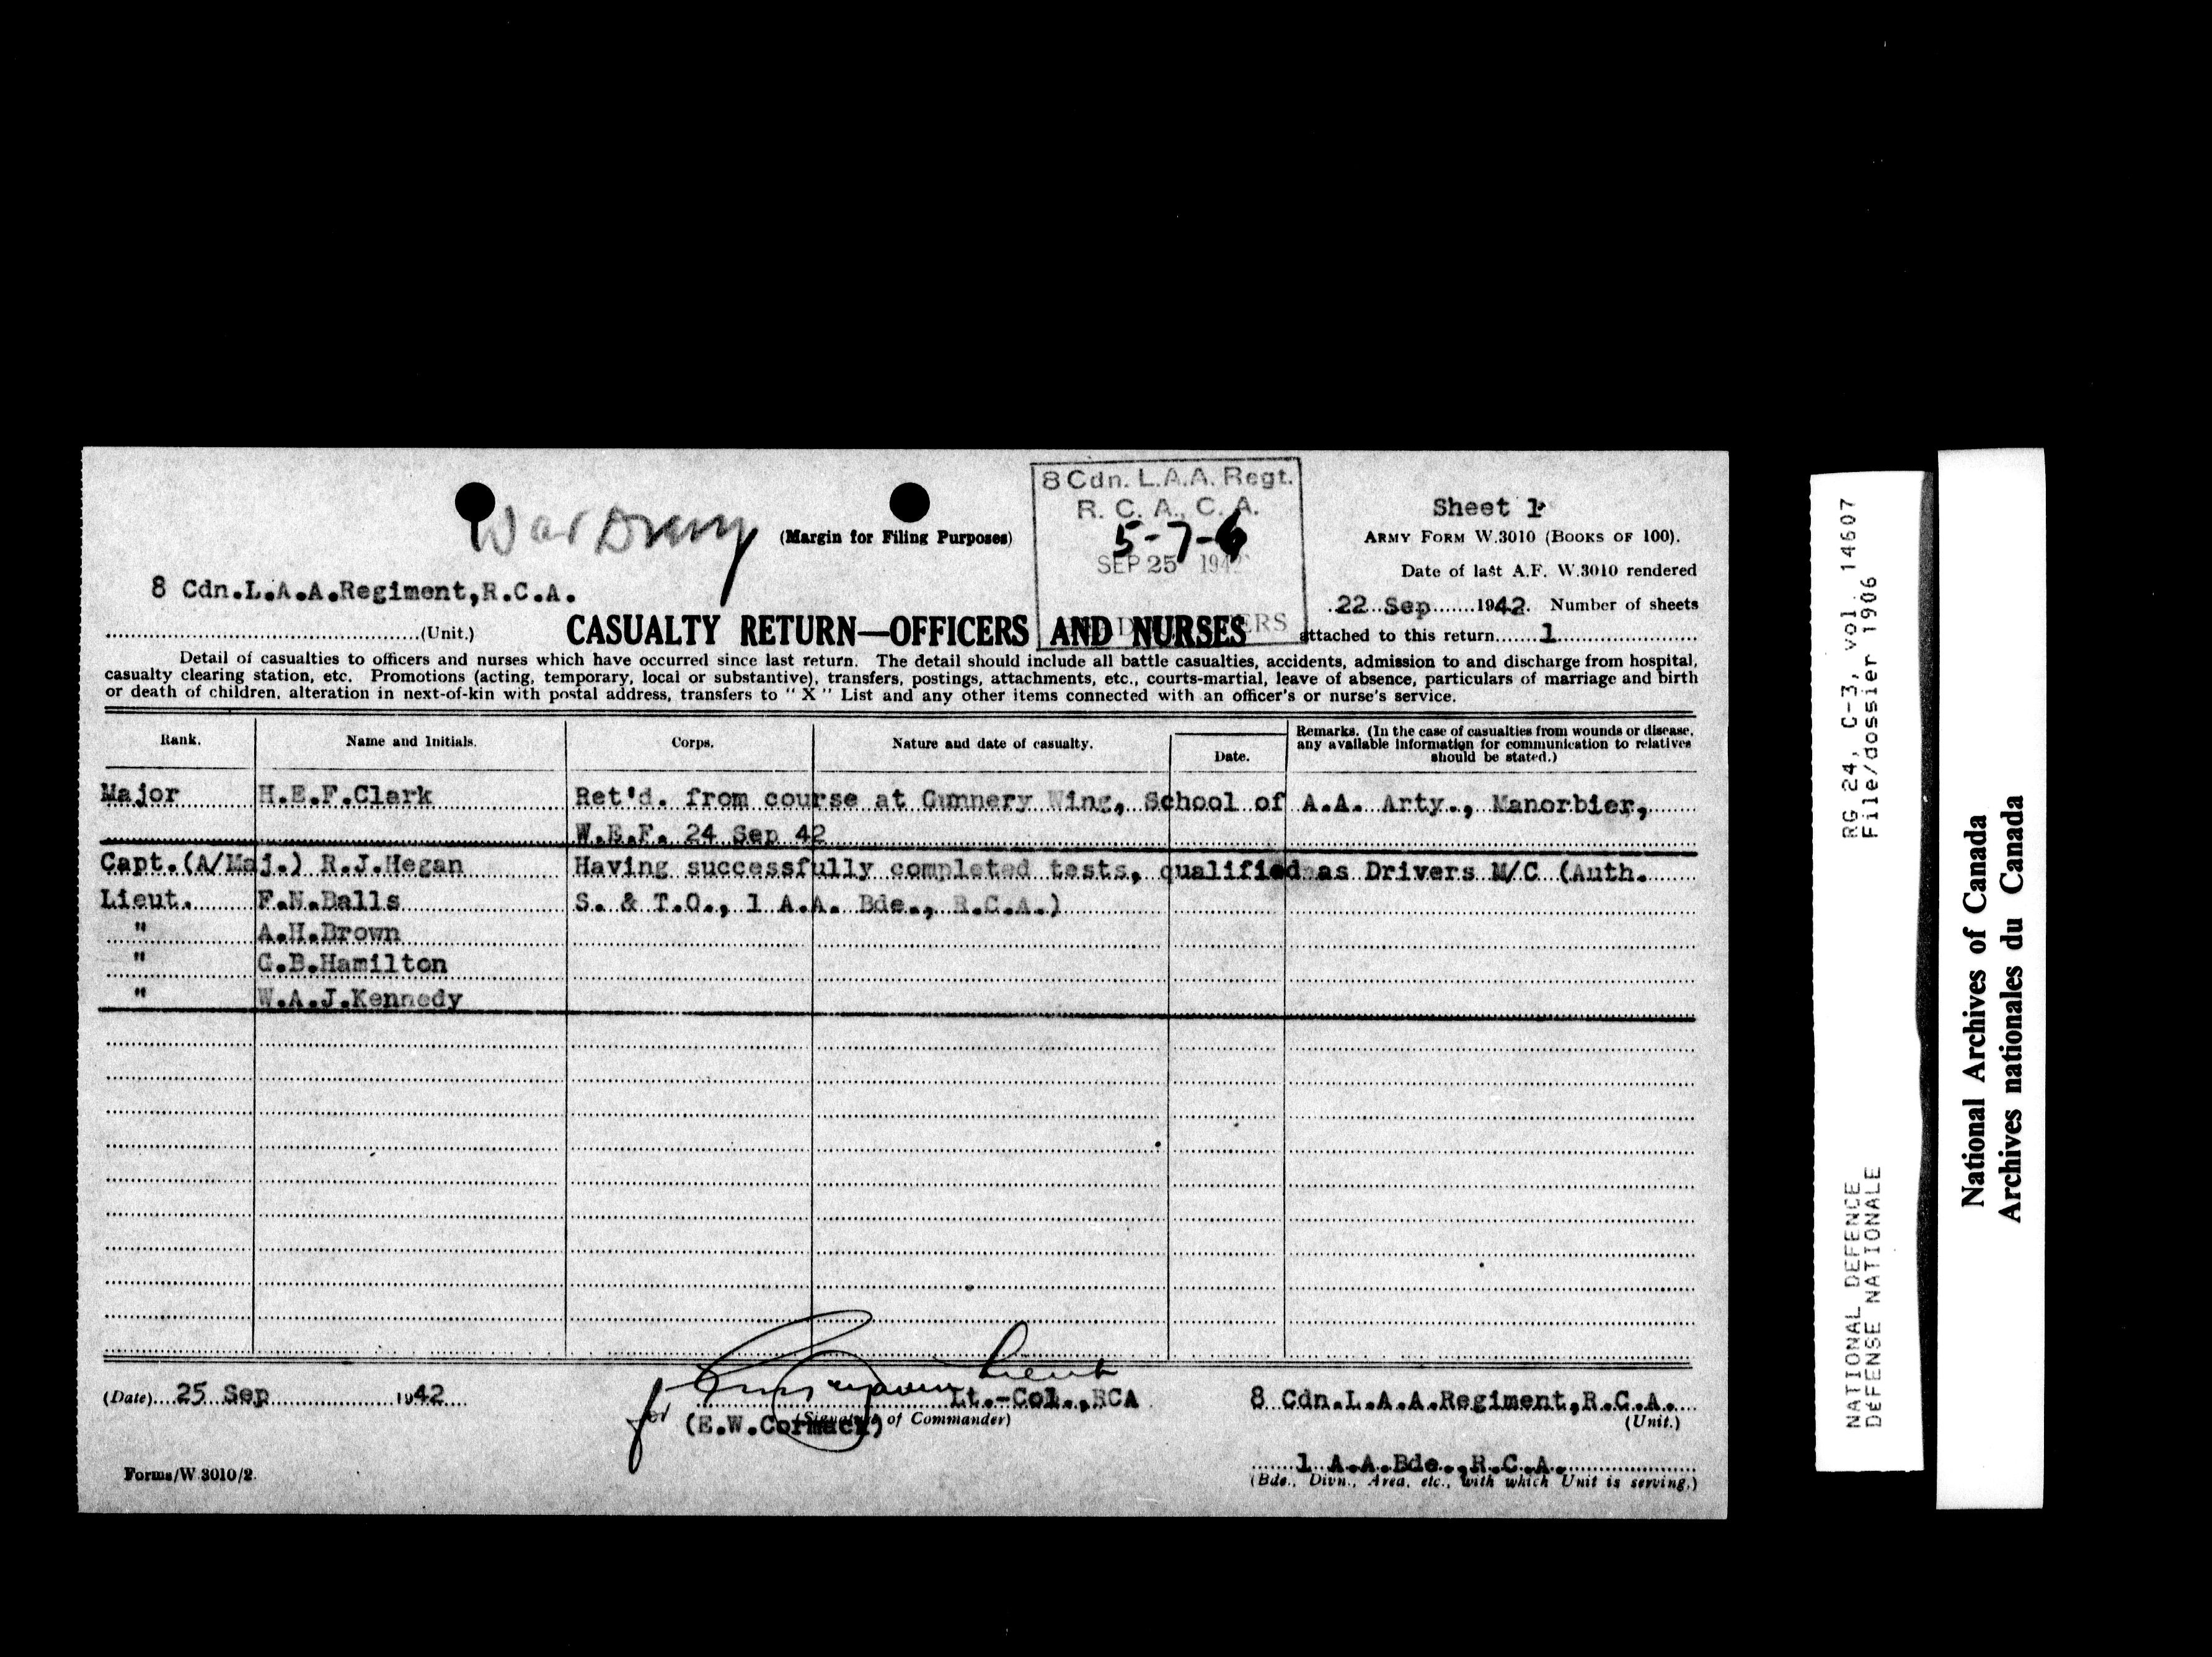 8 Cdn. L.A.A. Regt.
R. C. A., C. A.
5-7-6
SEP 25 194
War Diary
(Margin for Filing Purposes)
Sheet 1
ARMY FORM W.3010 (BOOKS OF 100).
Date of last A.F. W.3010 rendered
22 Sep 1942. Number of sheets
attached to this return 1
8 Cdn.L.A.A.Regiment,R.C.A.
(Unit.)
CASUALTY RETURN—OFFICERS AND NURSES
Detail of casualties to officers and nurses which have occurred since last return. The detail should include all battle casualties, accidents, admission to and discharge from hospital,
casualty clearing station, etc. Promotions (acting, temporary, local or substantive), transfers, postings, attachments, etc., courts-martial, leave of absence, particulars of marriage and birth
or death of children, alteration in next-of-kin with postal address, transfers to " X " List and any other items connected with an officer's or nurse's service.
Rank. Name and Initials. Corps. Nature and date of casualty. Date. Remarks. (In the case of casualties from wounds or disease,
any available information for communication to relatives
should be stated.)
Major H.E.F.Clark Ret'd. from course at Gunnery Wing, School of A.A. Arty., Manorbier,
W.E.F. 24 Sep 42
Capt.(A/Maj.) R.J.Hegan Having successfully completed tests, qualified as Drivers M/C (Auth.
Lieut. F.N.Balls S. & T.O., 1 A.A. Bde., R.C.A.)
" A.H.Brown
" G.B.Hamilton
" W.A.J.Kennedy
(Date) 25 Sep 1942
for Lieut
Lt.-Col.,RCA
(E.W.Cormack)
(Signature of Commander)
8 Cdn.L.A.A.Regiment,R.C.A.
(Unit.)
1 A.A.Bde.,R.C.A.
(Bde., Divn., Area, etc., with which Unit is serving.)
Forms/W 3010/2.
RG 24, C-3, vol. 14607
File/dossier 1906
NATIONAL DEFENCE
DÉFENSE NATIONALE
National Archives of Canada
Archives nationales du Canada